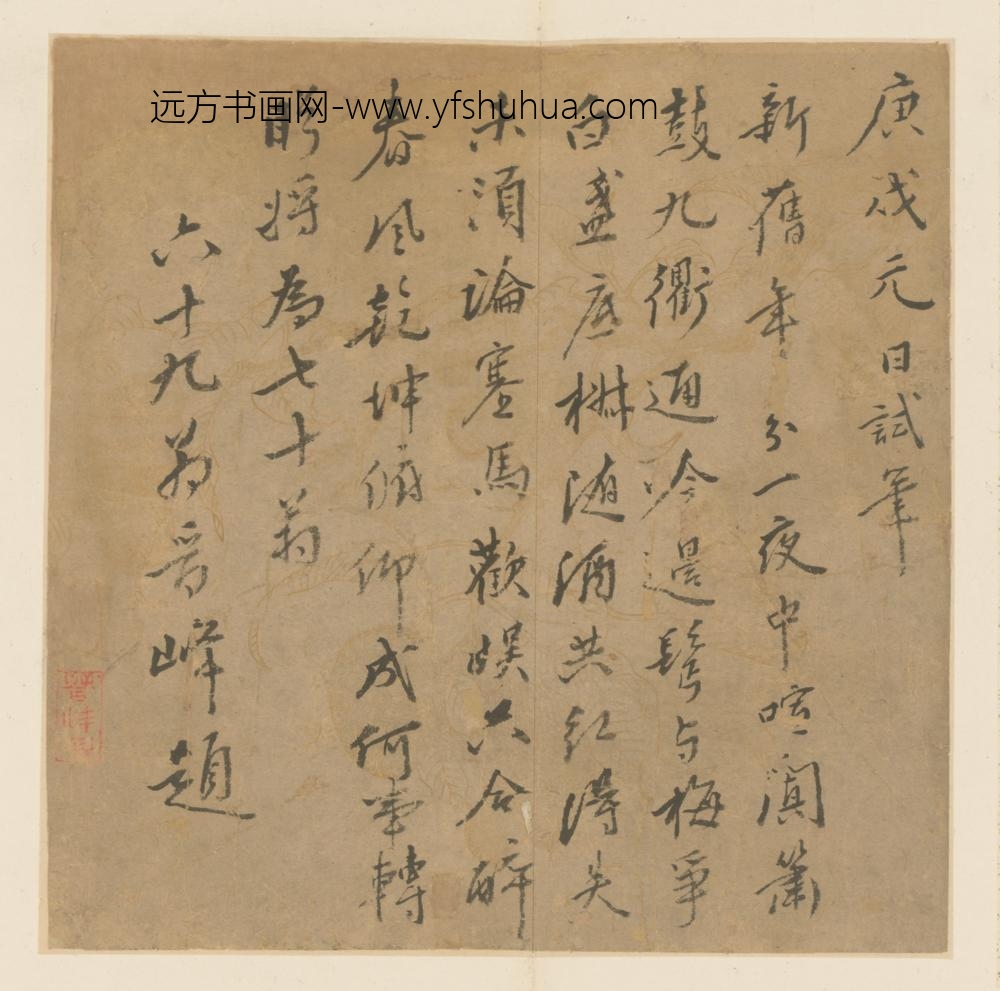 远方书画网-www.yfshuhua.com
庚戌元日試筆
新舊年分一夜中喧闐簫
鼓九衢通吟邊鬢與梅爭
白盞底椒随酒共紅得失
未須論塞馬歡娱只合醉
春風乾坤俯仰成何事轉
盻将為七十翁
六十九翁晋峰趙